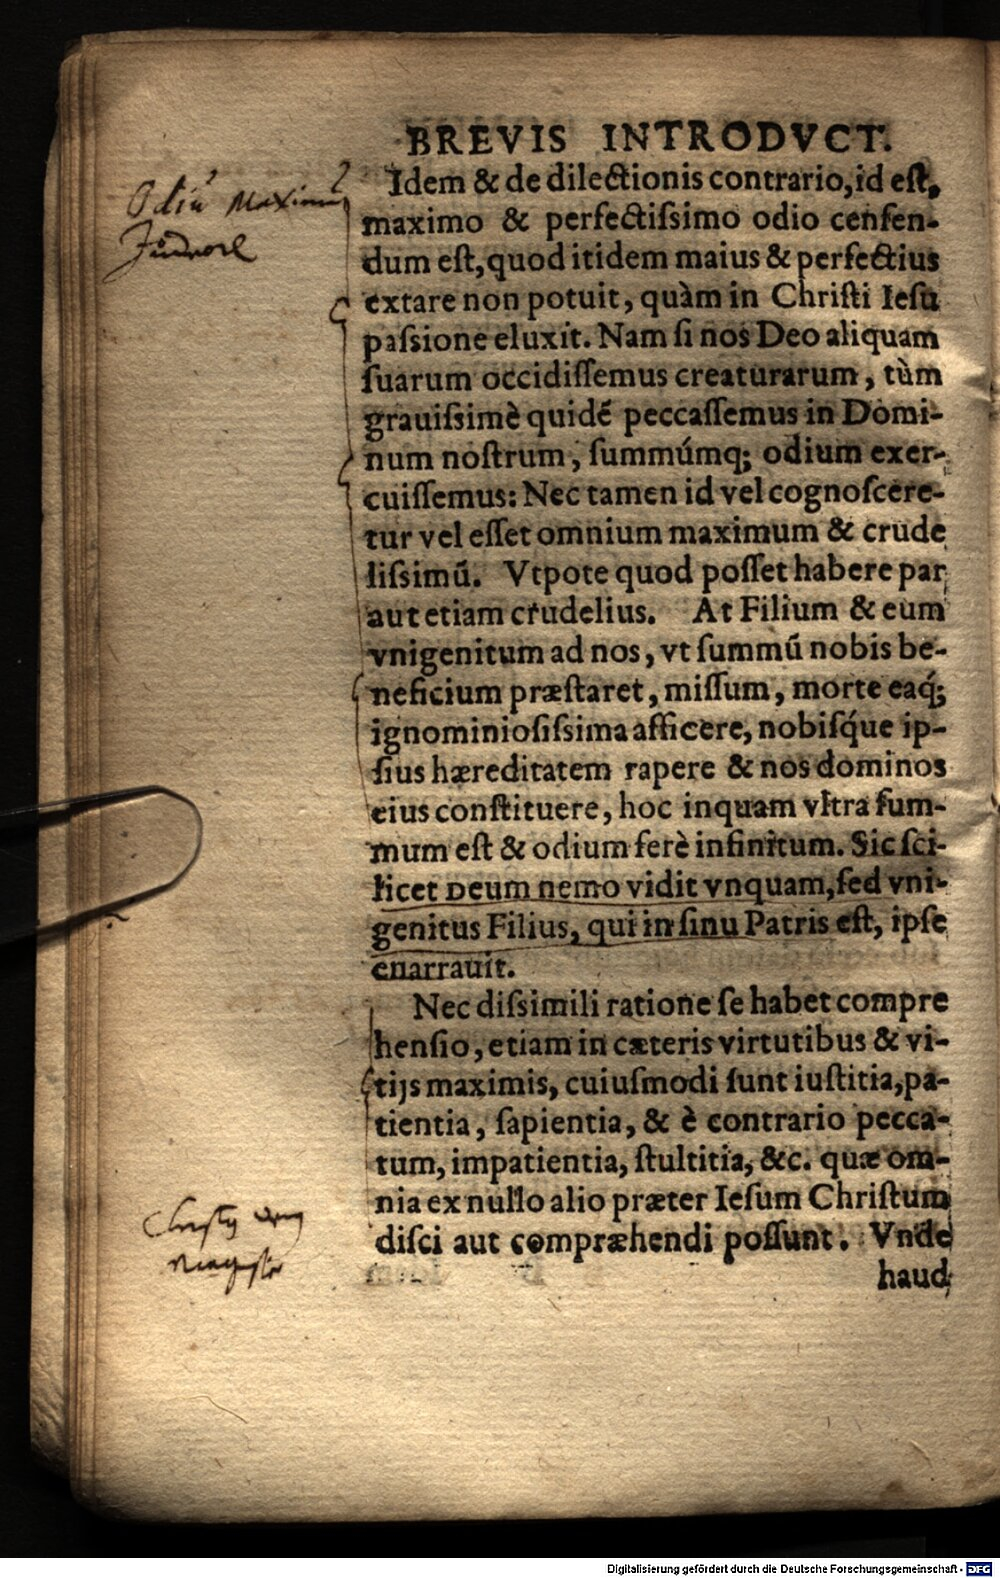 BREVIS INTRODVCT.
Idem & de dilectionis contrario, id est,
maximo & perfectissimo odio censen-
dum est, quod itidem maius & perfectius
extare non potuit, quàm in Christi Iesu
passione eluxit. Nam si nos Deo aliquam
suarum occidissemus creaturarum, tùm
grauissimè quidẽ peccassemus in Domi-
num nostrum, summúmq; odium exer-
cuissemus: Nec tamen id vel cognoscere-
tur vel esset omnium maximum & crude
lissimũ. Vtpote quod posset habere par
aut etiam crudelius. At Filium & eum
vnigenitum ad nos, vt summũ nobis be-
neficium præstaret, missum, morte eaq́;
ignominiosissima afficere, nobisq́ue ip-
sius hæreditatem rapere & nos dominos
eius constituere, hoc inquam vltra sum-
mum est & odium ferè infinitum. Sic sci-
licet Deum nemo vidit vnquam, sed vni-
genitus Filius, qui in sinu Patris est, ipse
enarrauit.
Nec dissimili ratione se habet compre
hensio, etiam in cæteris virtutibus & vi-
tijs maximis, cuiusmodi sunt iustitia, pa-
tientia, sapientia, & è contrario pecca-
tum, impatientia, stultitia, &c. quæ om-
nia ex nullo alio præter Iesum Christum
disci aut compræhendi possunt. Vnde
haud
Odiũ Maximũ
Magister
Digitalisierung gefördert durch die Deutsche Forschungsgemeinschaft - DFG